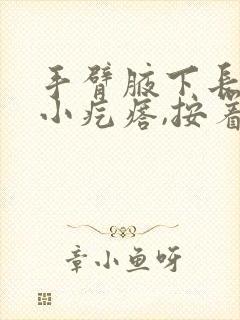 手臂腋下長
小疙瘩,按着
章小鱼呀